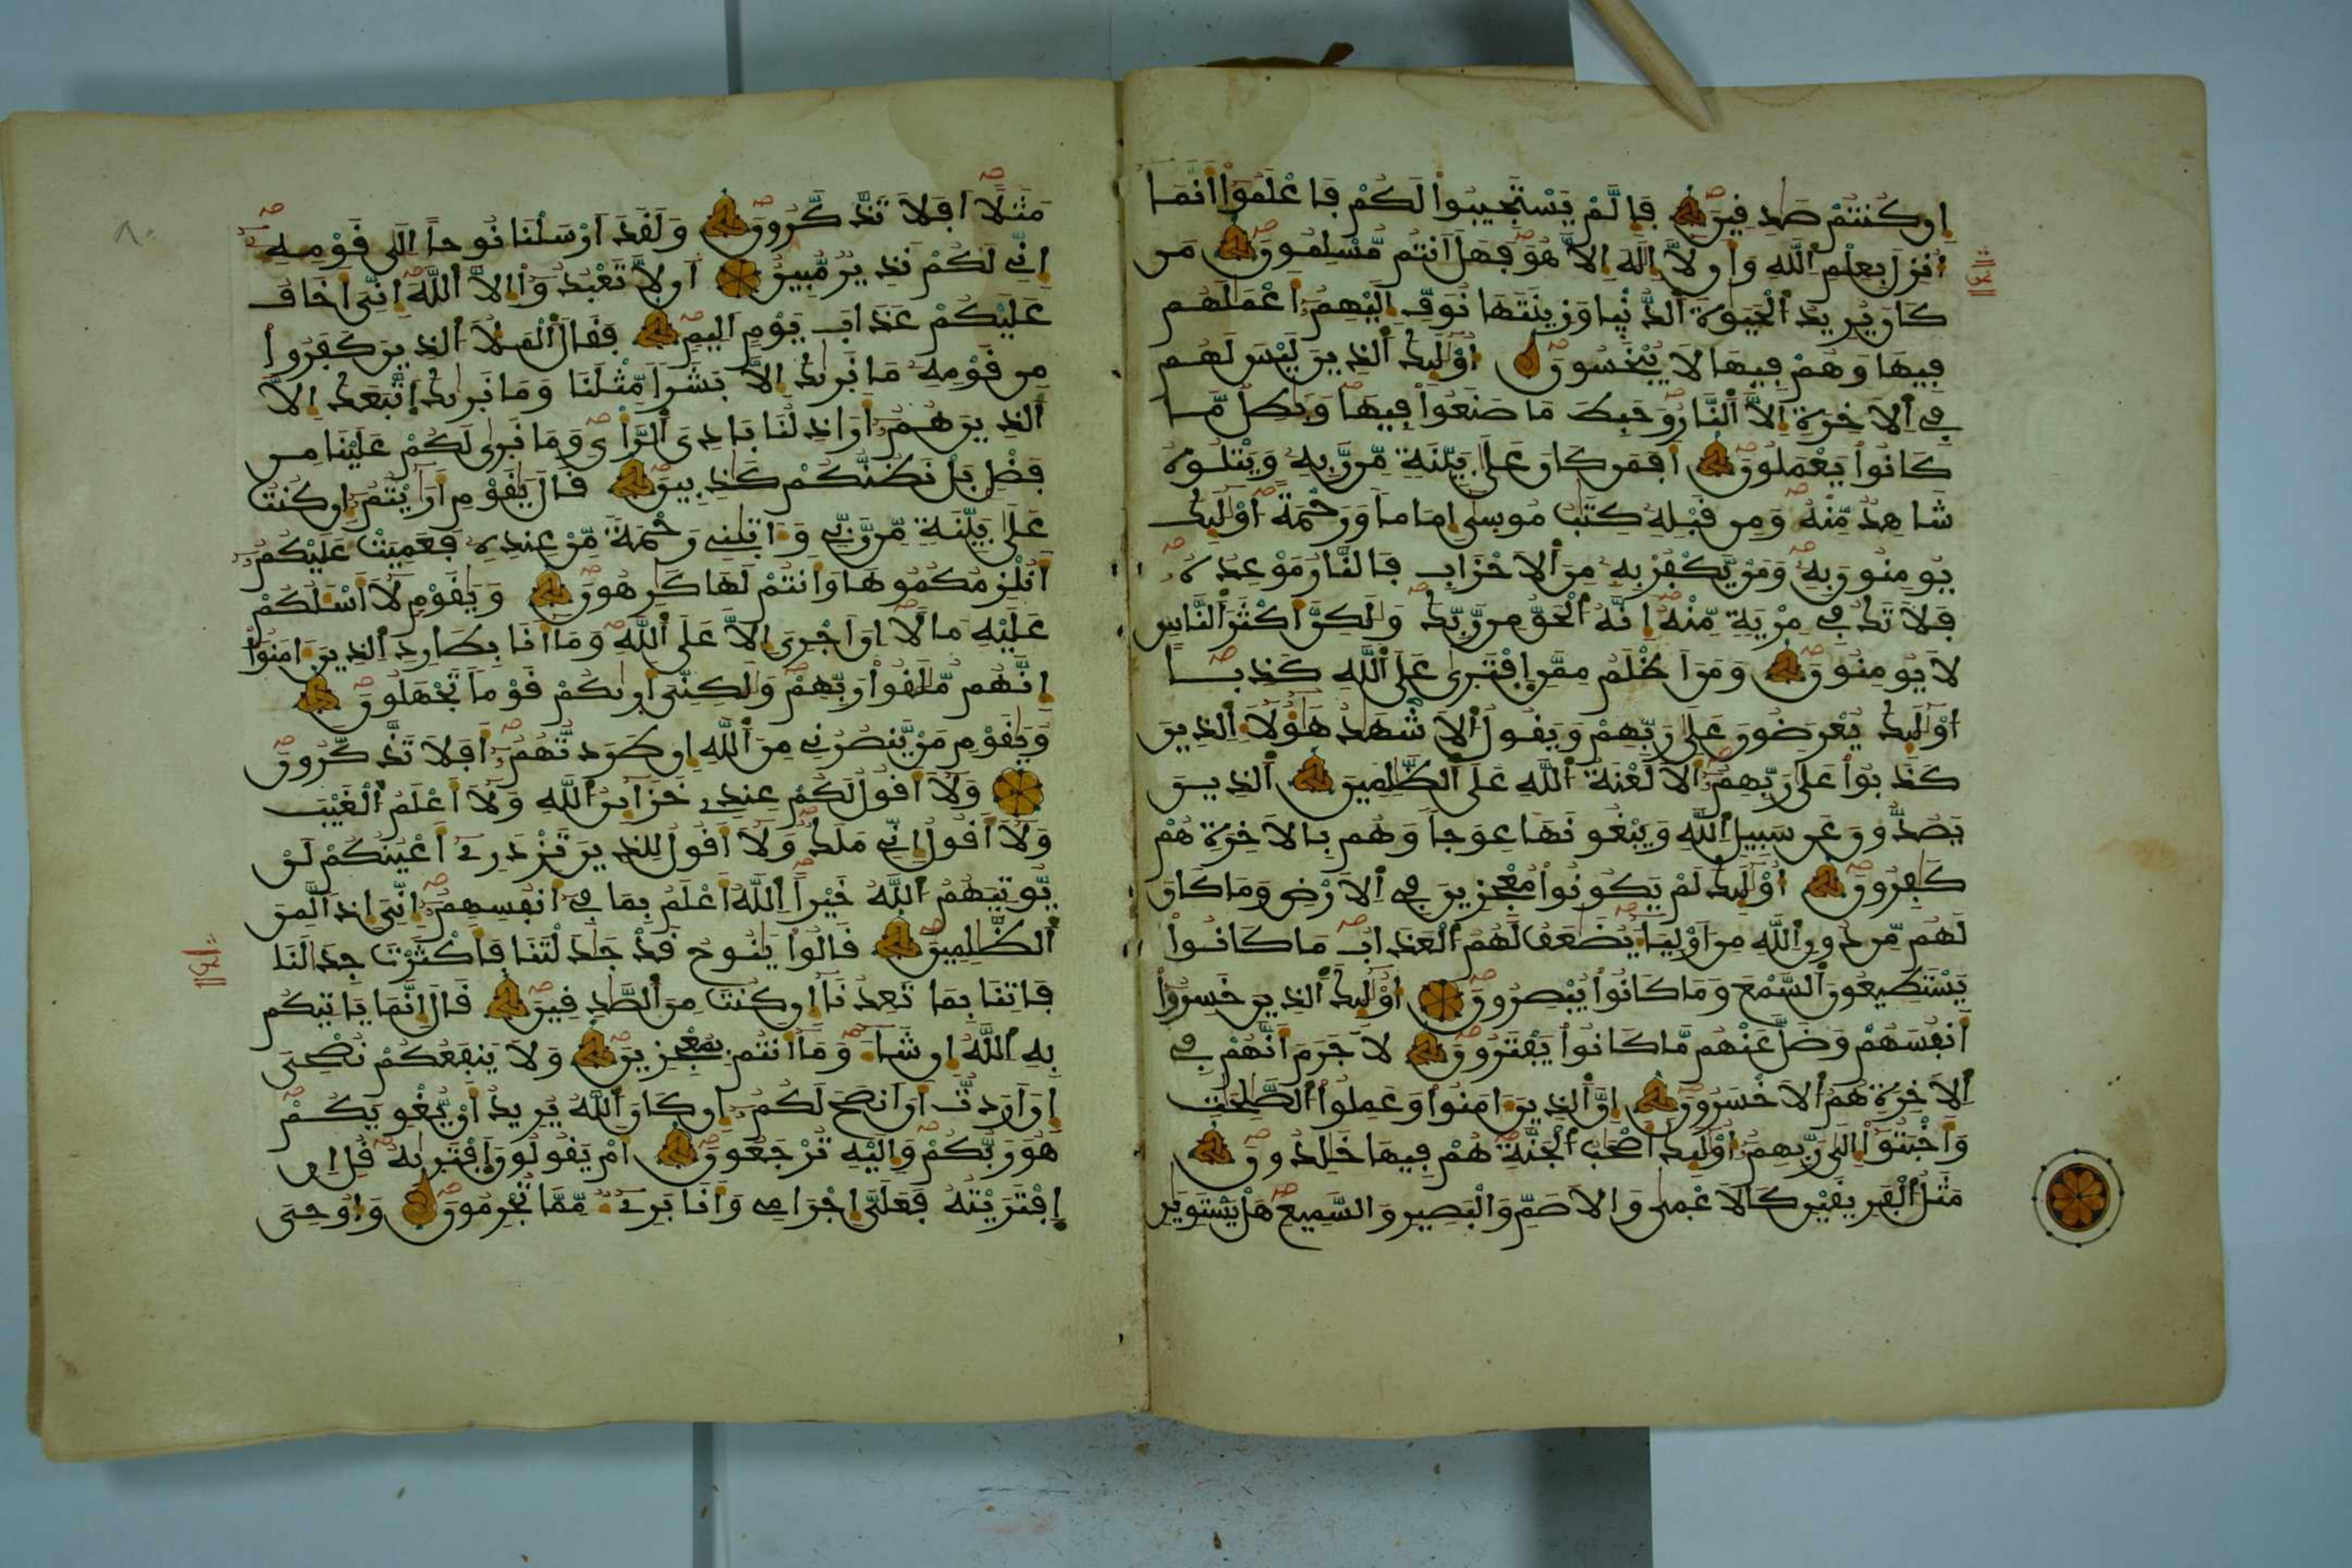 إن كنتم صدقين فإلم يستجيبوا لكم فاعلموا أنما
أنزل بعلم الله وأن لا إله إلا هو فهل أنتم مسلمون من
كان يريد الحيوة الدنيا وزينتها نوف إليهم أعملهم
فيها وهم فيها لا يبخسون أولئك الذين ليس لهم
في الاخرة إلا النار وحبط ما صنعوا فيها وبطل ما
كانوا يعملون أفمن كان على بينة من ربه ويتلوه
شاهد منه ومن قبله كتب موسى إماما ورحمة أولئك
يومنون به ومن يكفر به من الاحزاب فالنار موعده
فلا تك في مرية منه إنه الحق من ربك ولكن أكثر الناس
لا يومنون ومن أظلم ممن إفترى على الله كذبا
أولئك يعرضون على ربهم ويقول الاشهد هؤلاء الذين
كذبوا على ربهم ألا لعنة الله على الظلمين الذين
يصدون عن سبيل الله ويبغونها عوجا وهم بالاخرة هم
كفرون أولئك لم يكونوا معجزين في الارض وما كان
لهم من دون الله من أولياء يضعف لهم العذاب ما كانوا
يستطيعون السمع وما كانوا يبصرون أولئك الذين خسروا
أنفسهم وضل عنهم ما كانوا يفترون لا جرم أنهم في
الاخرة هم الاخسرون إن الذين ءامنوا وعملوا الصلحت
وأخبتوا إلى ربهم أولئك أصحب الجنة هم فيها خلدون
مثل الفريقين كالاعمى والاصم والبصير والسميع هل يستوين
مثلا أفلا تذكرون ولقد أرسلنا نوحا إلى قومه
إني لكم نذير مبين أن لا تعبدوا إلا الله إني أخاف
عليكم عذاب يوم أليم فقال الملأ الذين كفروا
من قومه ما نريك إلا بشرا مثلنا وما نريك إتبعك إلا
الذين هم أراذلنا بادي الرأي وما نرى لكم علينا من
فضل بل نظنكم كذبين قال يقوم أرايتم إن كنت
على بينة من ربي وءاتيني رحمة من عنده فعميت عليكم
أنلزمكموها وأنتم لها كرهون ويقوم لا أسلكم
عليه مالا إن أجري إلا على الله وما أنا بطارد الذين ءامنوا
إنهم ملقوا ربهم ولكني أريكم قوما تجهلون
ويقوم من ينصرني من الله إن طردتهم أفلا تذكرون
ولا أقول لكم عندي خزائن الله ولا أعلم الغيب
ولا أقول إني ملك ولا أقول للذين تزدري أعينكم لن
يوتيهم الله خيرا الله أعلم بما في أنفسهم إني إذا لمن
الظلمين قالوا ينوح قد جدلتنا فأكثرت جدالنا
فاتنا بما تعدنا إن كنت من الصدقين قال إنما ياتيكم
به الله إن شاء وما أنتم بمعجزين ولا ينفعكم نصحي
إن أردت أن أنصح لكم إن كان الله يريد أن يغويكم
هو ربكم وإليه ترجعون أم يقولون إفتريه قل إن
إفتريته فعلي إجرامي وأنا بريء مما تجرمون وأوحي